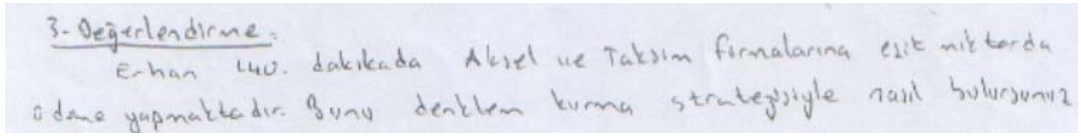 3- Değerlendirme:
Erhan 140. dakikada Aksel ve Taksim firmalarına eşit miktarda
ödeme yapmaktadır. Bunu denklem kurma stratejisiyle nasıl bulursunuz